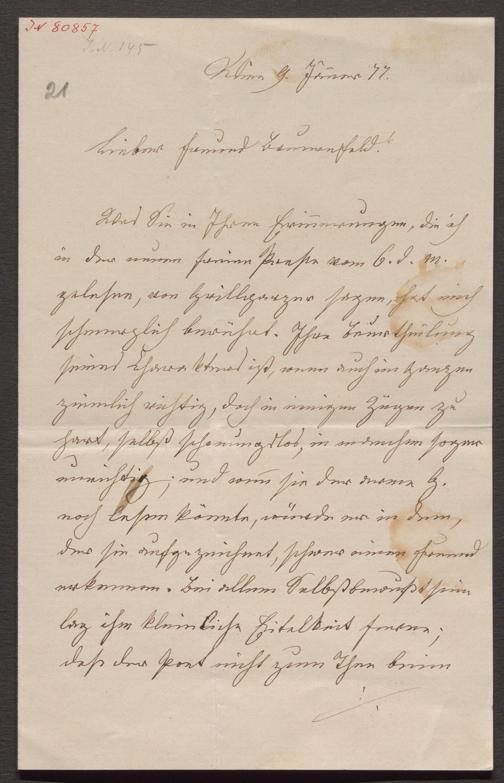 IN 80857
I.N. 145
21
Wien 9. Jänner 77.
Lieber Freund Bauernfeld!
Was Sie in Ihren Erinnerungen, die ich
in der neuen freien Presse vom 6. d. M.
gelesen, von Grillparzer sagen, hat mich
schmerzlich berührt. Ihre Beurtheilung
seines Charakters ist, wenn auch im Ganzen
ziemlich richtig, doch in einigen Zügen zu
hart, selbst schonungslos, in manchen sogar
unrichtig; und wenn sie der arme G.
noch lesen könnte, würde er in dem,
der sie aufgezeichnet, schwer einen Freund
erkennen. Bei allem Selbstbewußtsein
lag ihm kleinliche Eitelkeit ferne;
daß der Poet nicht zum Thee beim
./.